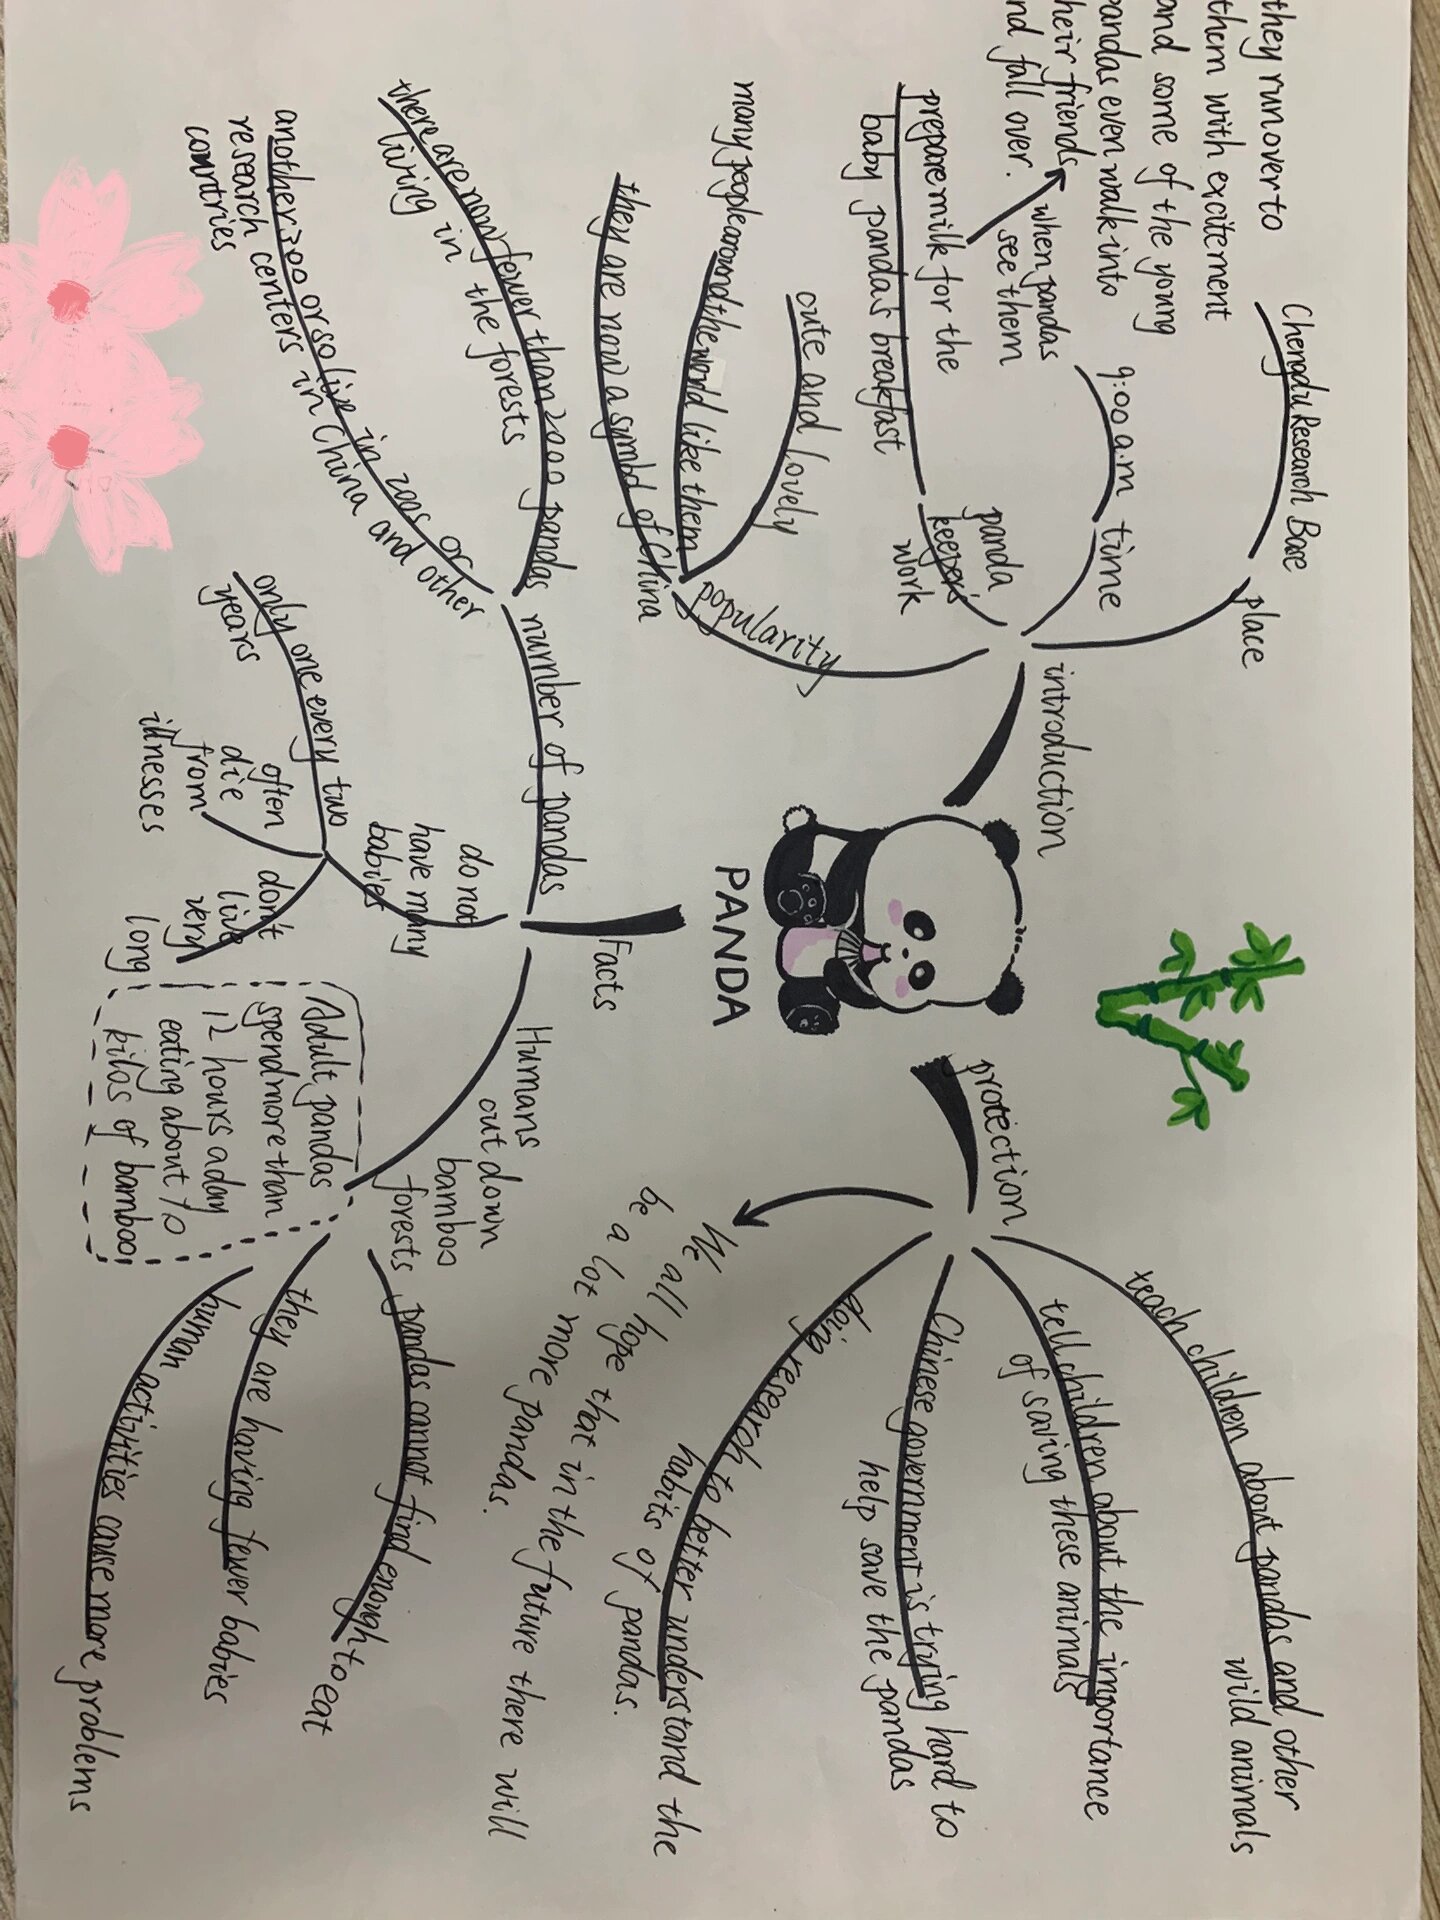 PANDA
introduction
place
Chengdu Research Base
time
9:00 a.m
panda
keeper's
work
prepare milk for the
baby panda's breakfast
when pandas
see them
they run over to
them with excitement
and some of the young
pandas even walk into
their friends
and fall over.
popularity
cute and lovely
many people around the world like them
they are now a symbol of China
Facts
number of pandas
there are now fewer than 2000 pandas
living in the forests
another 300 or so live in zoos or
research centers in China and other
countries
do not
have many
babies
only one every two
years
often
die
from
illnesses
don't
live
very
long
Humans
cut down
bamboo
forests
Adult pandas
spend more than
12 hours a day
eating about 10
kilos of bamboo
pandas cannot find enough to eat
they are having fewer babies
human activities cause more problems
protection
teach children about pandas and other
wild animals
tell children about the importance
of saving these animals
Chinese government is trying hard to
help save the pandas
doing research to better understand the
habits of pandas.
We all hope that in the future there will
be a lot more pandas.